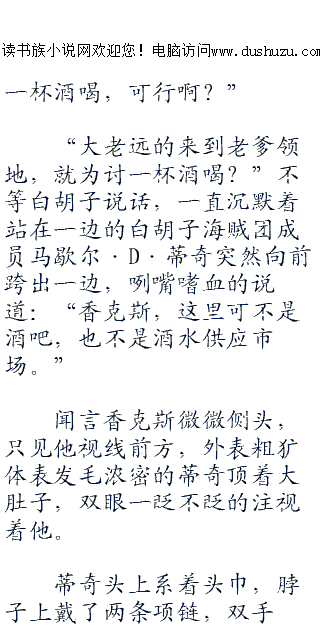 读书族小说网欢迎您！电脑访问www.dushuzu.com
一杯酒喝，可行啊？”
“大老远的来到老爹领
地，就为讨一杯酒喝？”不
等白胡子说话，一直沉默着
站在一边的白胡子海贼团成
员马歇尔·D·蒂奇突然向前
跨出一边，咧嘴嗜血的说
道：“香克斯，这里可不是
酒吧，也不是酒水供应市
场。”
闻言香克斯微微侧头，
只见他视线前方，外表粗犷
体表发毛浓密的蒂奇顶着大
肚子，双眼一眨不眨的注视
着他。
蒂奇头上系着头巾，脖
子上戴了两条项链，双手